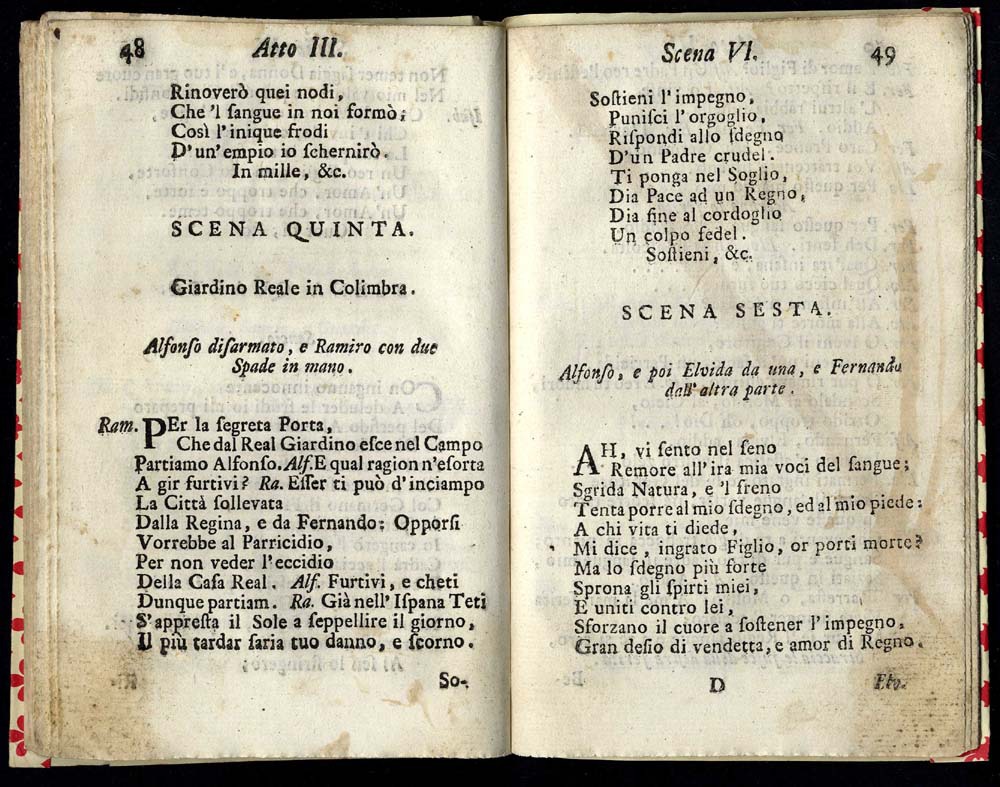 48 Atto III.
Rinoverò quei nodi,
Che 'l ſangue in noi formò;
Così l'inique frodi
D'un'empio io ſchernirò.
In mille, &c.
SCENA QUINTA.
Giardino Reale in Colimbra.
Alfonſo diſarmato, e Ramiro con due
Spade in mano.
Ram. PEr la ſegreta Porta,
Che dal Real Giardino eſce nel Campo
Partiamo Alfonſo. Alf. E qual ragion n'eſorta
A gir furtivi? Ra. Eſſer ti può d'inciampo
La Città ſollevata
Dalla Regina, e da Fernando: Opporſi
Vorrebbe al Parricidio,
Per non veder l'eccidio
Della Caſa Real. Alf. Furtivi, e cheti
Dunque partiam. Ra. Già nell'Iſpana Teti
S'appreſta il Sole a ſeppellire il giorno,
Il più tardar ſaria tuo danno, e ſcorno.
So-
Scena VI. 49
Soſtieni l'impegno,
Puniſci l'orgoglio,
Riſpondi allo ſdegno
D'un Padre crudel.
Ti ponga nel Soglio,
Dia Pace ad un Regno,
Dia fine al cordoglio
Un colpo fedel.
Soſtieni, &c.
SCENA SESTA.
Alfonſo, e poi Elvida da una, e Fernando
dall'altra parte.
AH, vi ſento nel ſeno
Remore all'ira mia voci del ſangue;
Sgrida Natura, e 'l freno
Tenta porre al mio ſdegno, ed al mio piede:
A chi vita ti diede,
Mi dice, ingrato Figlio, or porti morte?
Ma lo ſdegno più forte
Sprona gli ſpirti miei,
E uniti contro lei,
Sforzano il cuore a ſoſtener l'impegno,
Gran deſio di vendetta, e amor di Regno.
D